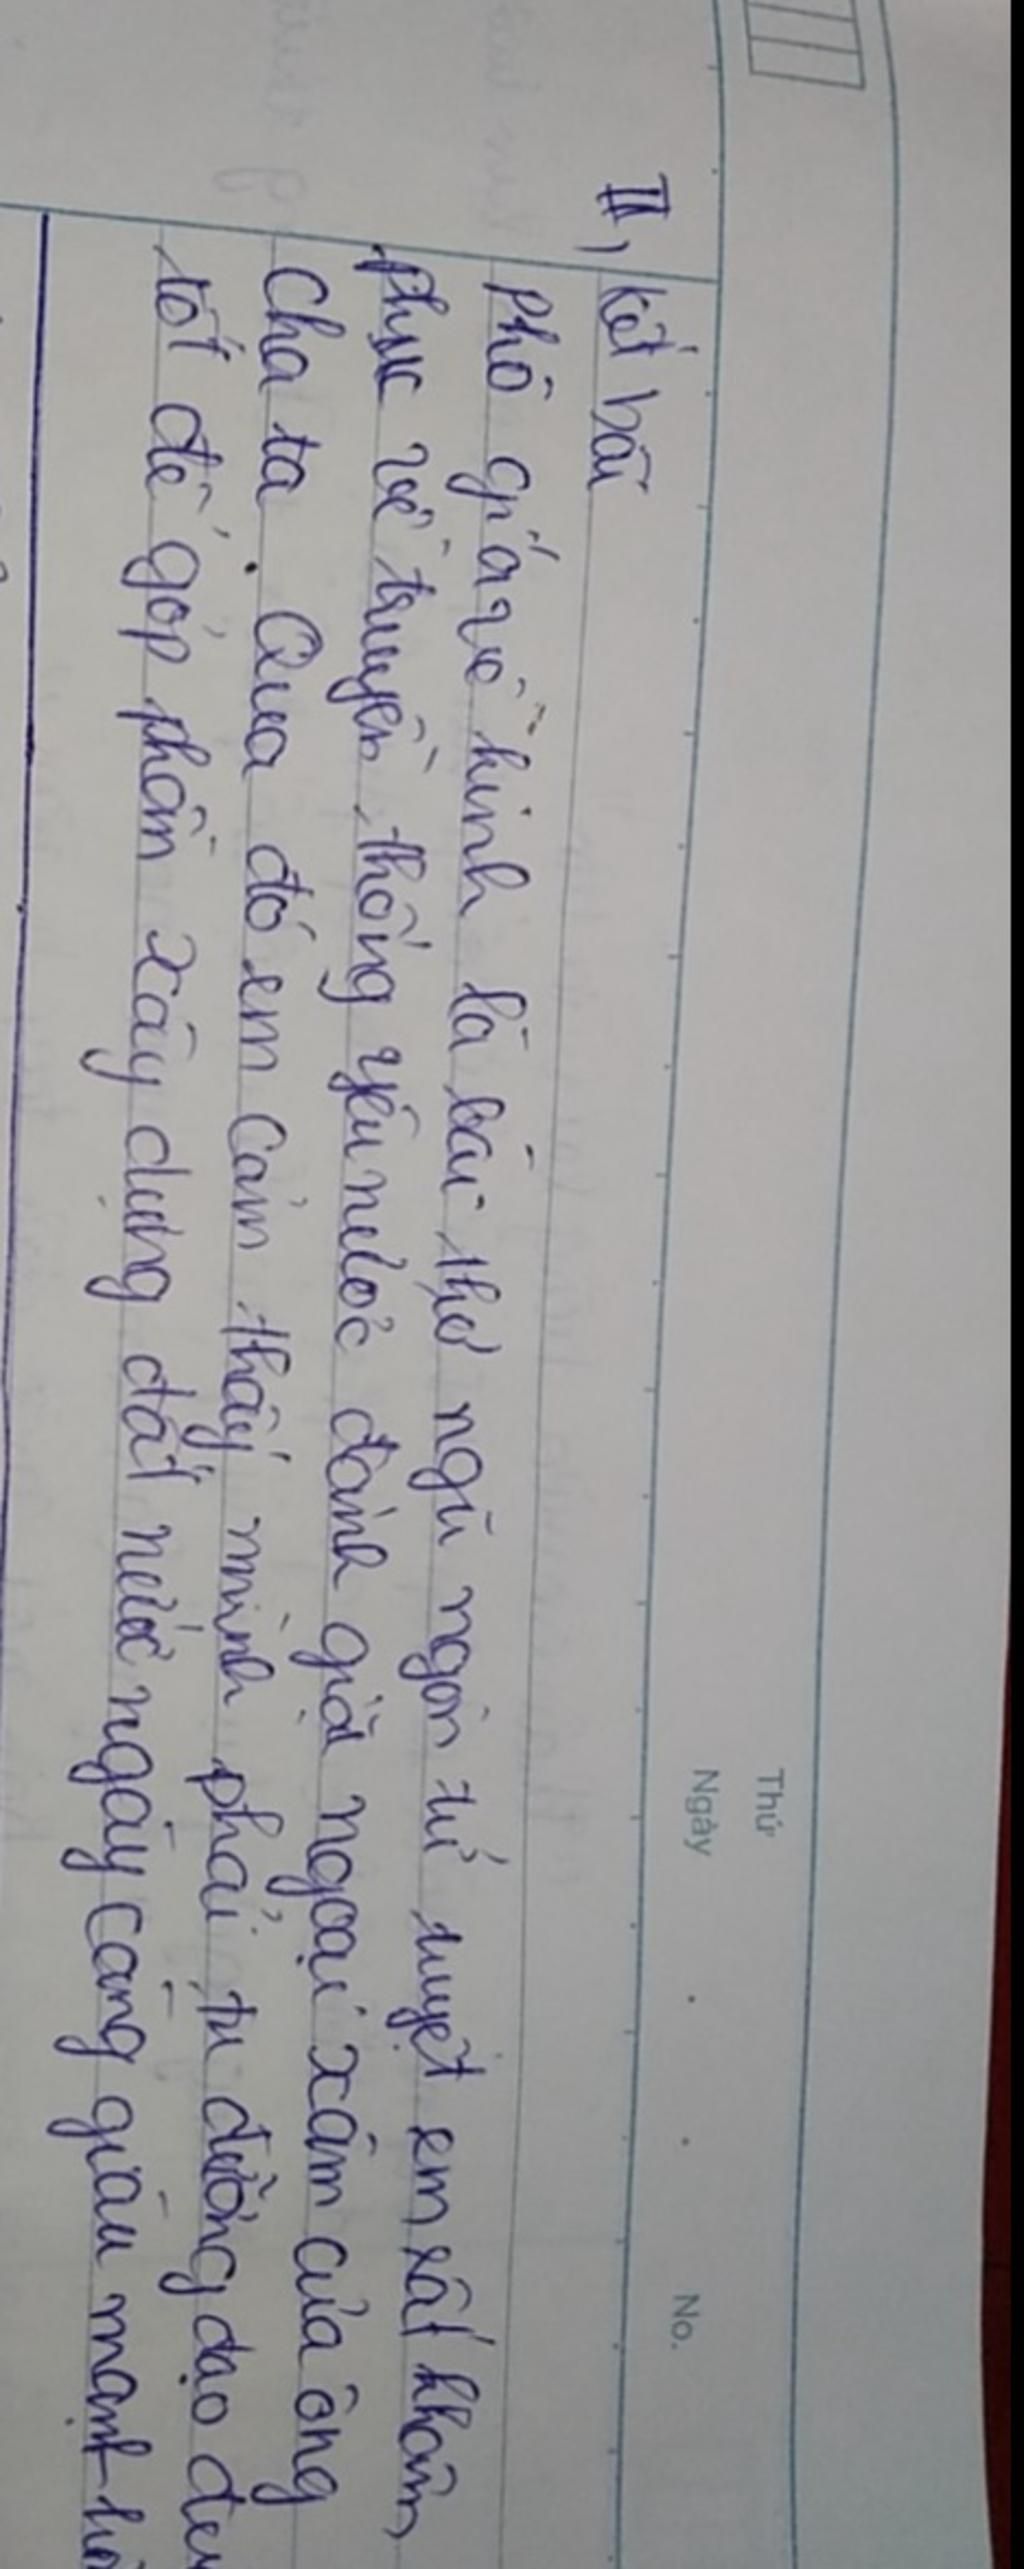 Thứ
Ngày No.
II, kết bài
Phò giá về kinh là bài thơ ngũ ngôn tứ tuyệt em rất khâm
phục về truyền thống yêu nước đánh giặc ngoại xâm của ông
Cha ta. Qua đó em cảm thấy mình phải tu dưỡng đạo
tốt để góp phần xây dựng đất nước ngày càng giàu mạnh